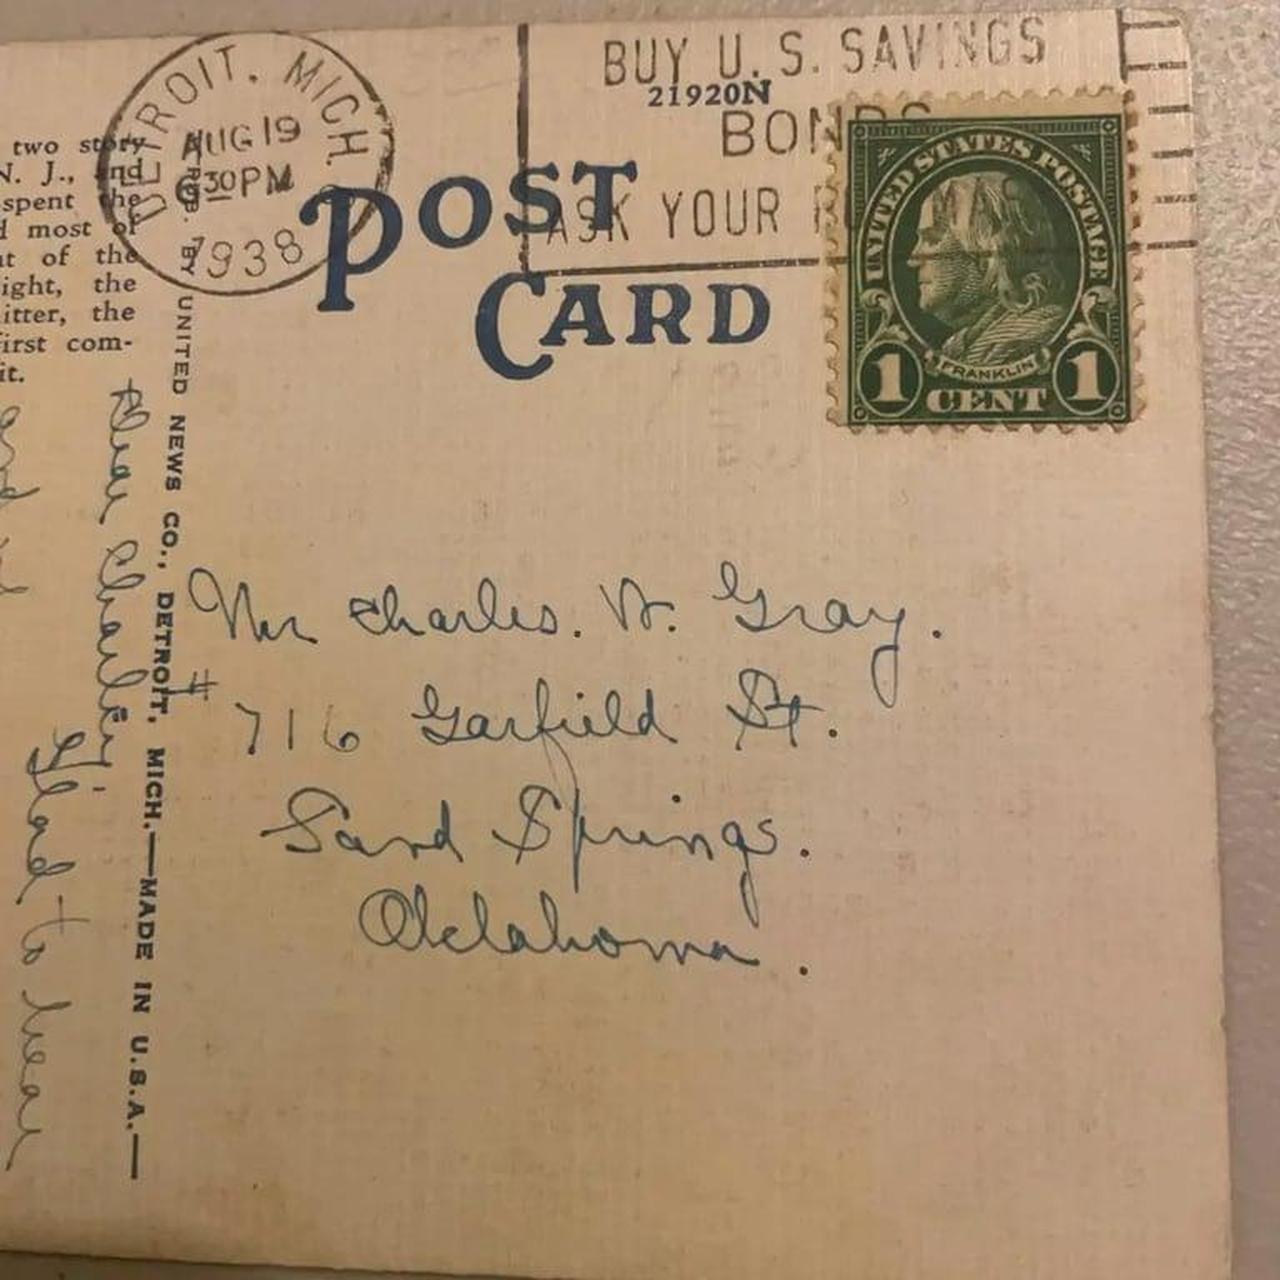 DETROIT, MICH.
AUG 19
6 30 PM
1938
BUY U.S. SAVINGS
BONDS
ASK YOUR
21920N
POST
CARD
UNITED STATES POSTAGE
FRANKLIN
1 CENT 1
two story
N. J., and
spent the
most of
of the
ight, the
itter, the
first com-
it.
BY UNITED NEWS CO., DETROIT, MICH.—MADE IN U.S.A.—
Dear Charley
Glad to hear
and
Mr Charles. W. Gray.
#716 Garfield St.
Sand Springs.
Oklahoma.